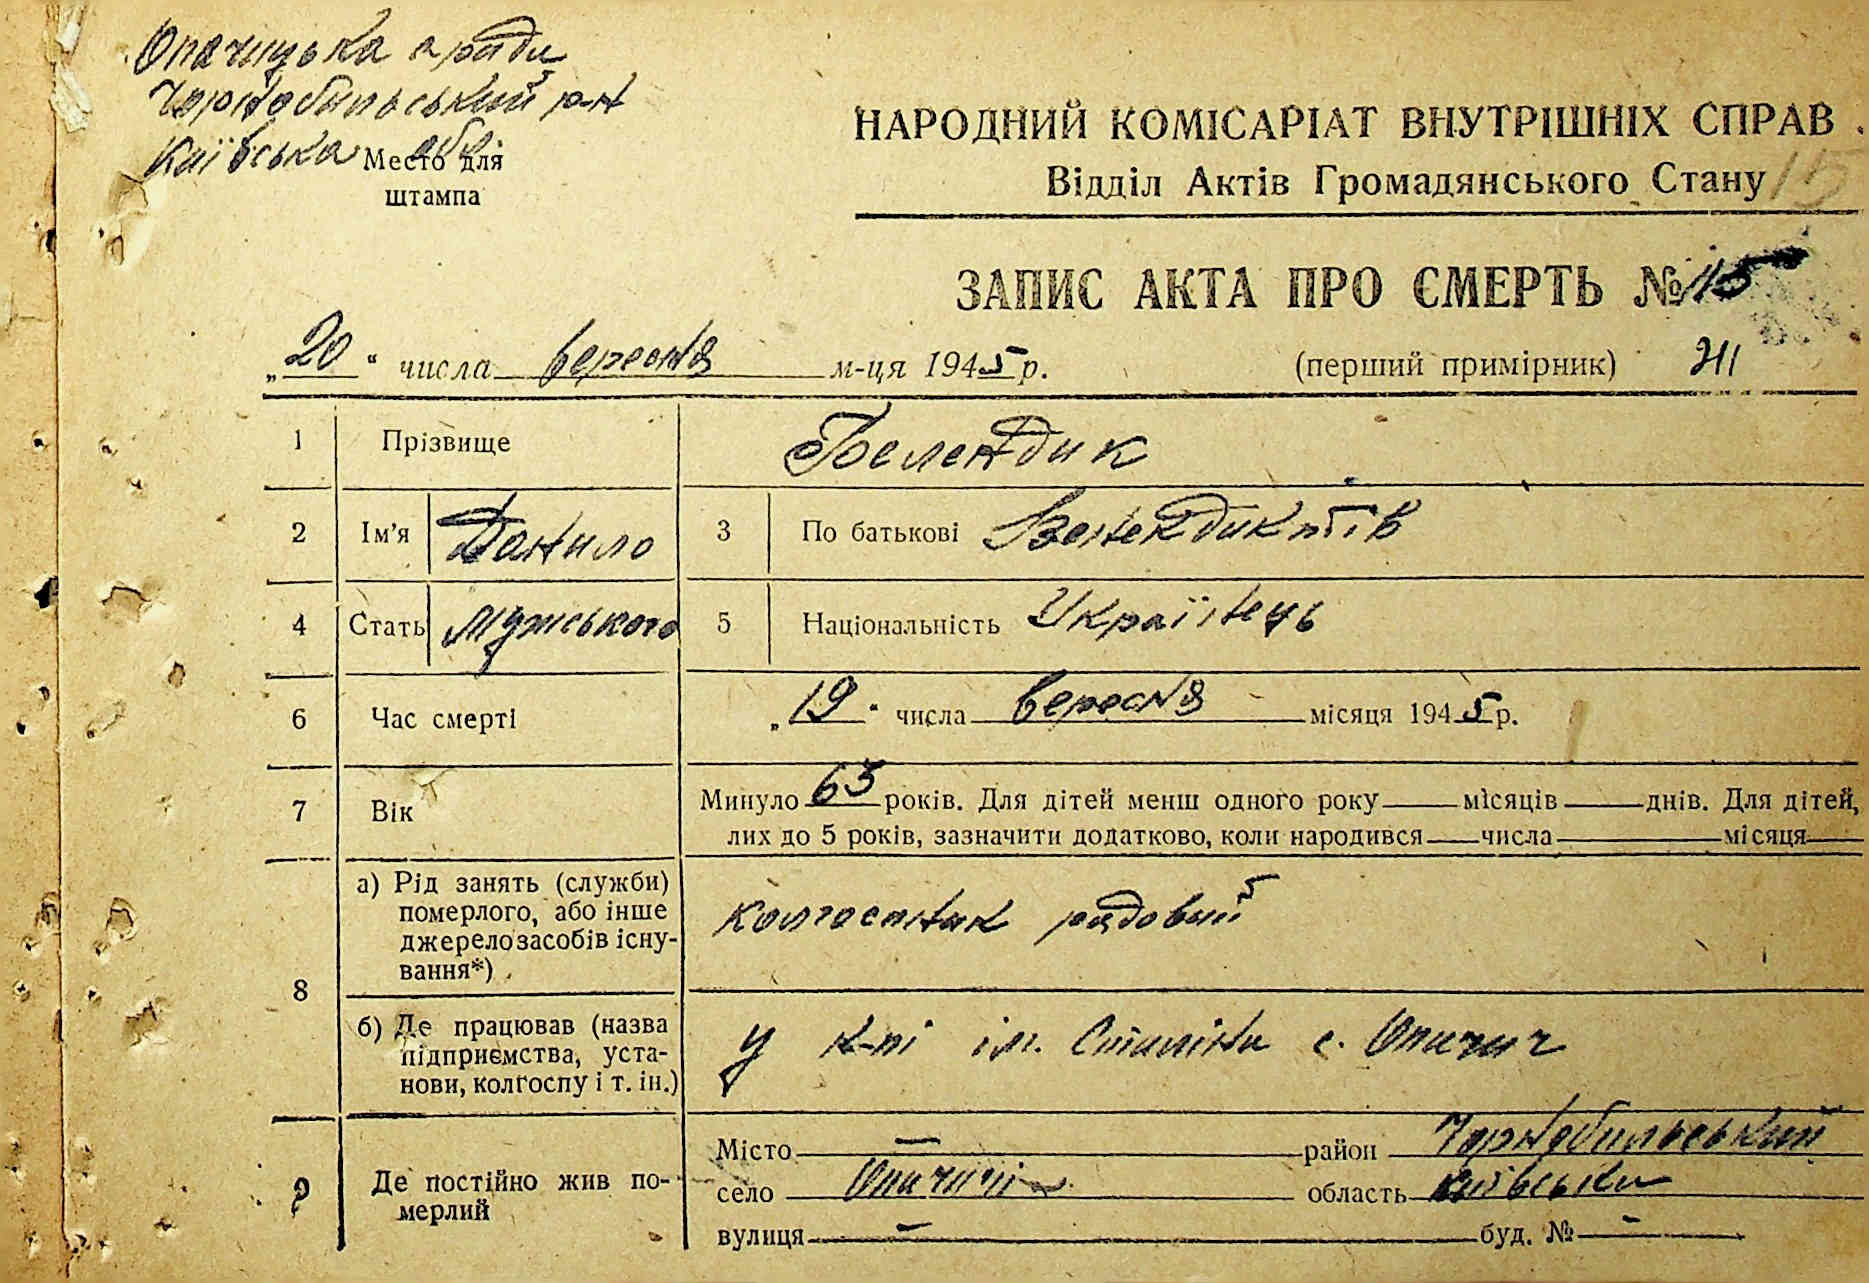 Опачицька с рада
Чорнобильський р-н
Київська обл.
Место для
штампа
НАРОДНИЙ КОМІСАРІАТ ВНУТРІШНІХ СПРАВ
Відділ Актів Громадянського Стану
15
ЗАПИС АКТА ПРО СМЕРТЬ № 15
„20“ числа вересня м-ця 1945 р.
(перший примірник)
1 Прізвище Белендик
2 Ім'я Данило 3 По батькові Венендиктів
4 Стать Мужського 5 Національність Українець
6 Час смерті „19“ числа вересня місяця 1945 р.
7 Вік Минуло 63 років. Для дітей менш одного року місяців днів. Для дітей,
лих до 5 років, зазначити додатково, коли народився числа місяця
8 а) Рід занять (служби)
померлого, або інше
джерело засобів існу-
вання*)
колгоспник рядовий
б) Де працював (назва
підприємства, уста-
нови, колгоспу і т. ін.)
у к-пі ім. Сталіна с. Опачич
9 Де постійно жив по-
мерлий
Місто — район Чорнобильський
село Опачичі область Київська
вулиця — буд. № —